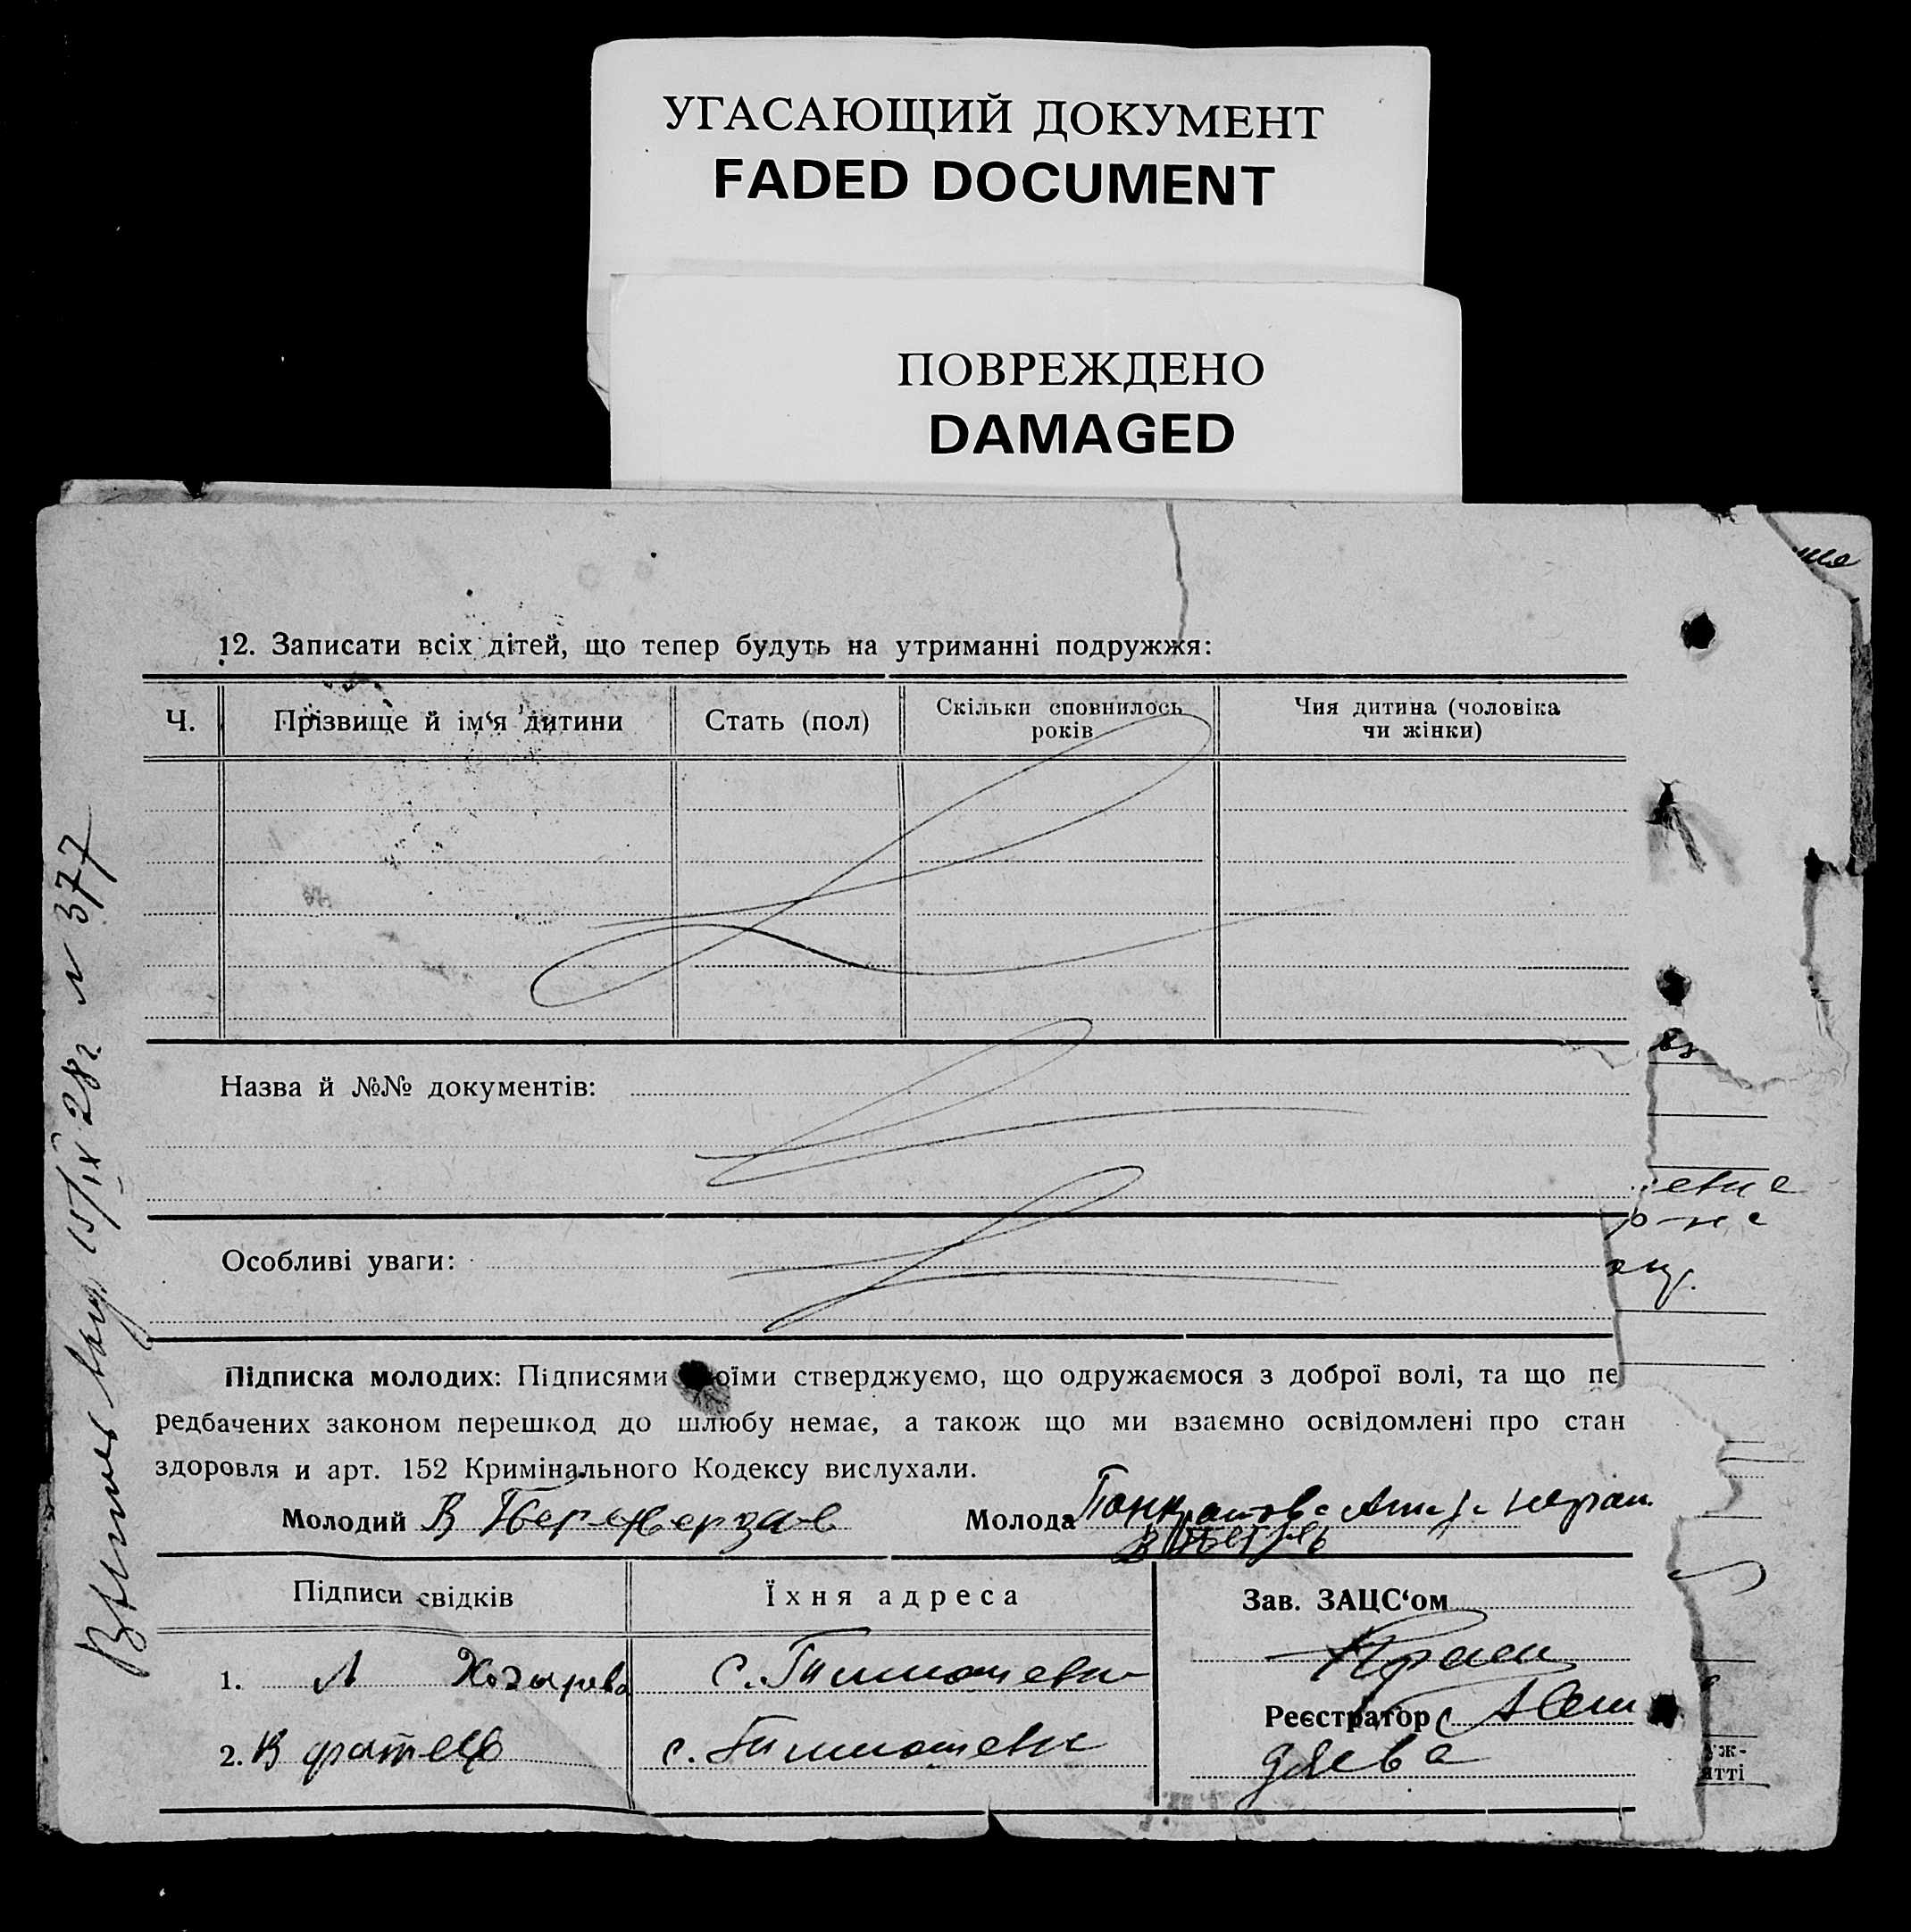 УГАСАЮЩИЙ ДОКУМЕНТ
FADED DOCUMENT
ПОВРЕЖДЕНО
DAMAGED
12. Записати всіх дітей, що тепер будуть на утриманні подружжя:
Ч. Прізвище й ім‘я дитини Стать (пол) Скільки сповнилось років Чия дитина (чоловіка чи жінки)
Назва й №№ документів:
Особливі уваги:
Підписка молодих: Підписями оїми стверджуємо, що одружаємося з доброї волі, та що пе
редбачених законом перешкод до шлюбу немає, а також що ми взаємно освідомлені про стан
здоровля и арт. 152 Кримінального Кодексу вислухали.
Молодий В Молода
Підписи свідків Їхня адреса Зав. ЗАЦС‘ом
1. Л Козырева с. Тимошевка
Реєстратор
2. В с. Тимошевка
15/IX 28г. № 377
уж-
ятті